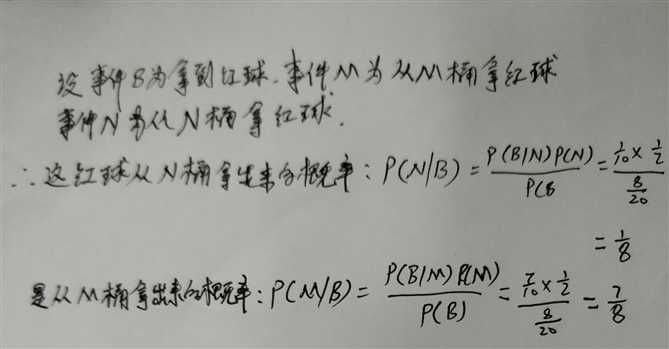 设事件B为拿到红球.事件M为从M桶拿红球
事件N为从N桶拿红球.
∴这红球从N桶拿出来的概率:P(N/B) = P(B/N)P(N)/P(B = 1/10 × 1/2 / 8/20
= 1/8
是从M桶拿出来的概率:P(M/B) = P(B/M)P(M)/P(B) = 7/10 × 1/2 / 8/20 = 7/8